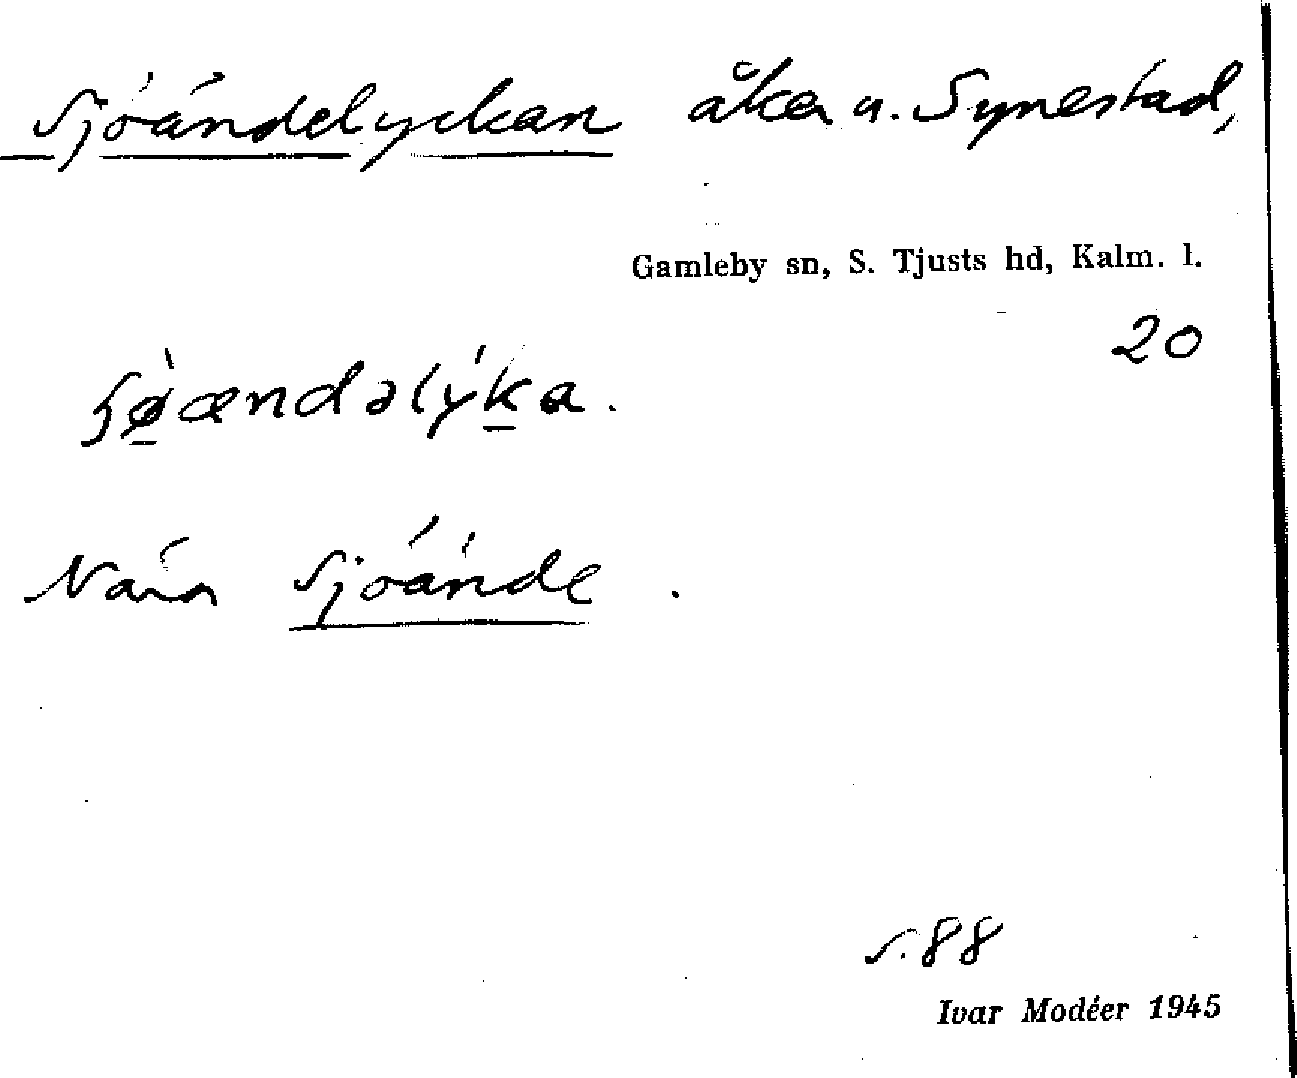 Sjöändelyckan åker u. Synestad,
Gamleby sn, S. Tjusts hd, Kalm. l.
20
ʃø̀ændəlýka.
Nära Sjöände.
s. 88
Ivar Modéer 1945